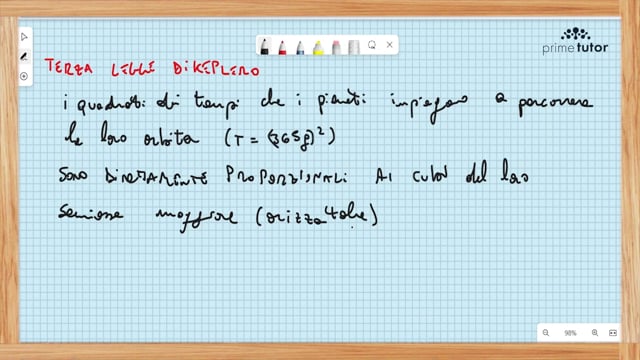 primetutor
TERZA LEGGE DI KEPLERO
i quadrati di tempi che i pianeti impiegano a percorrere
la loro orbita (T = (365g)²)
SONO DIRETTAMENTE PROPORZIONALI AI cubi del loro
semiasse maggiore (orizzontale)
98%